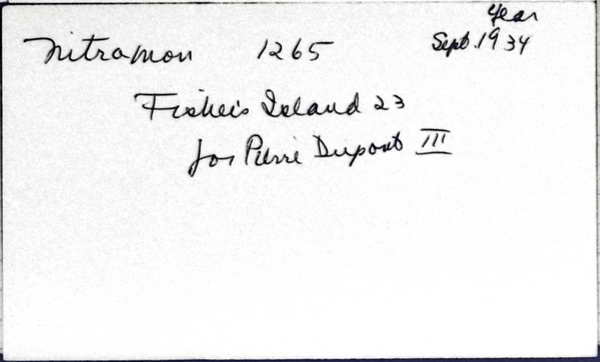 Year
Nitramon 1265 Sept. 1934
Fisher's Island 23
for Pierre Dupont III